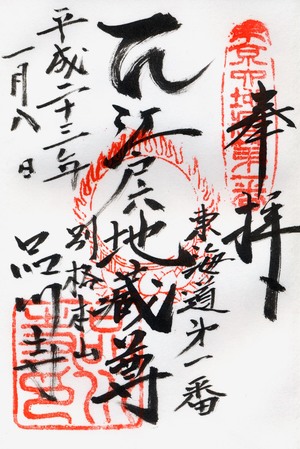 奉拝
東海道第一番
江戸六地蔵尊
別格本山
品川寺
平成二十三年
一月八日